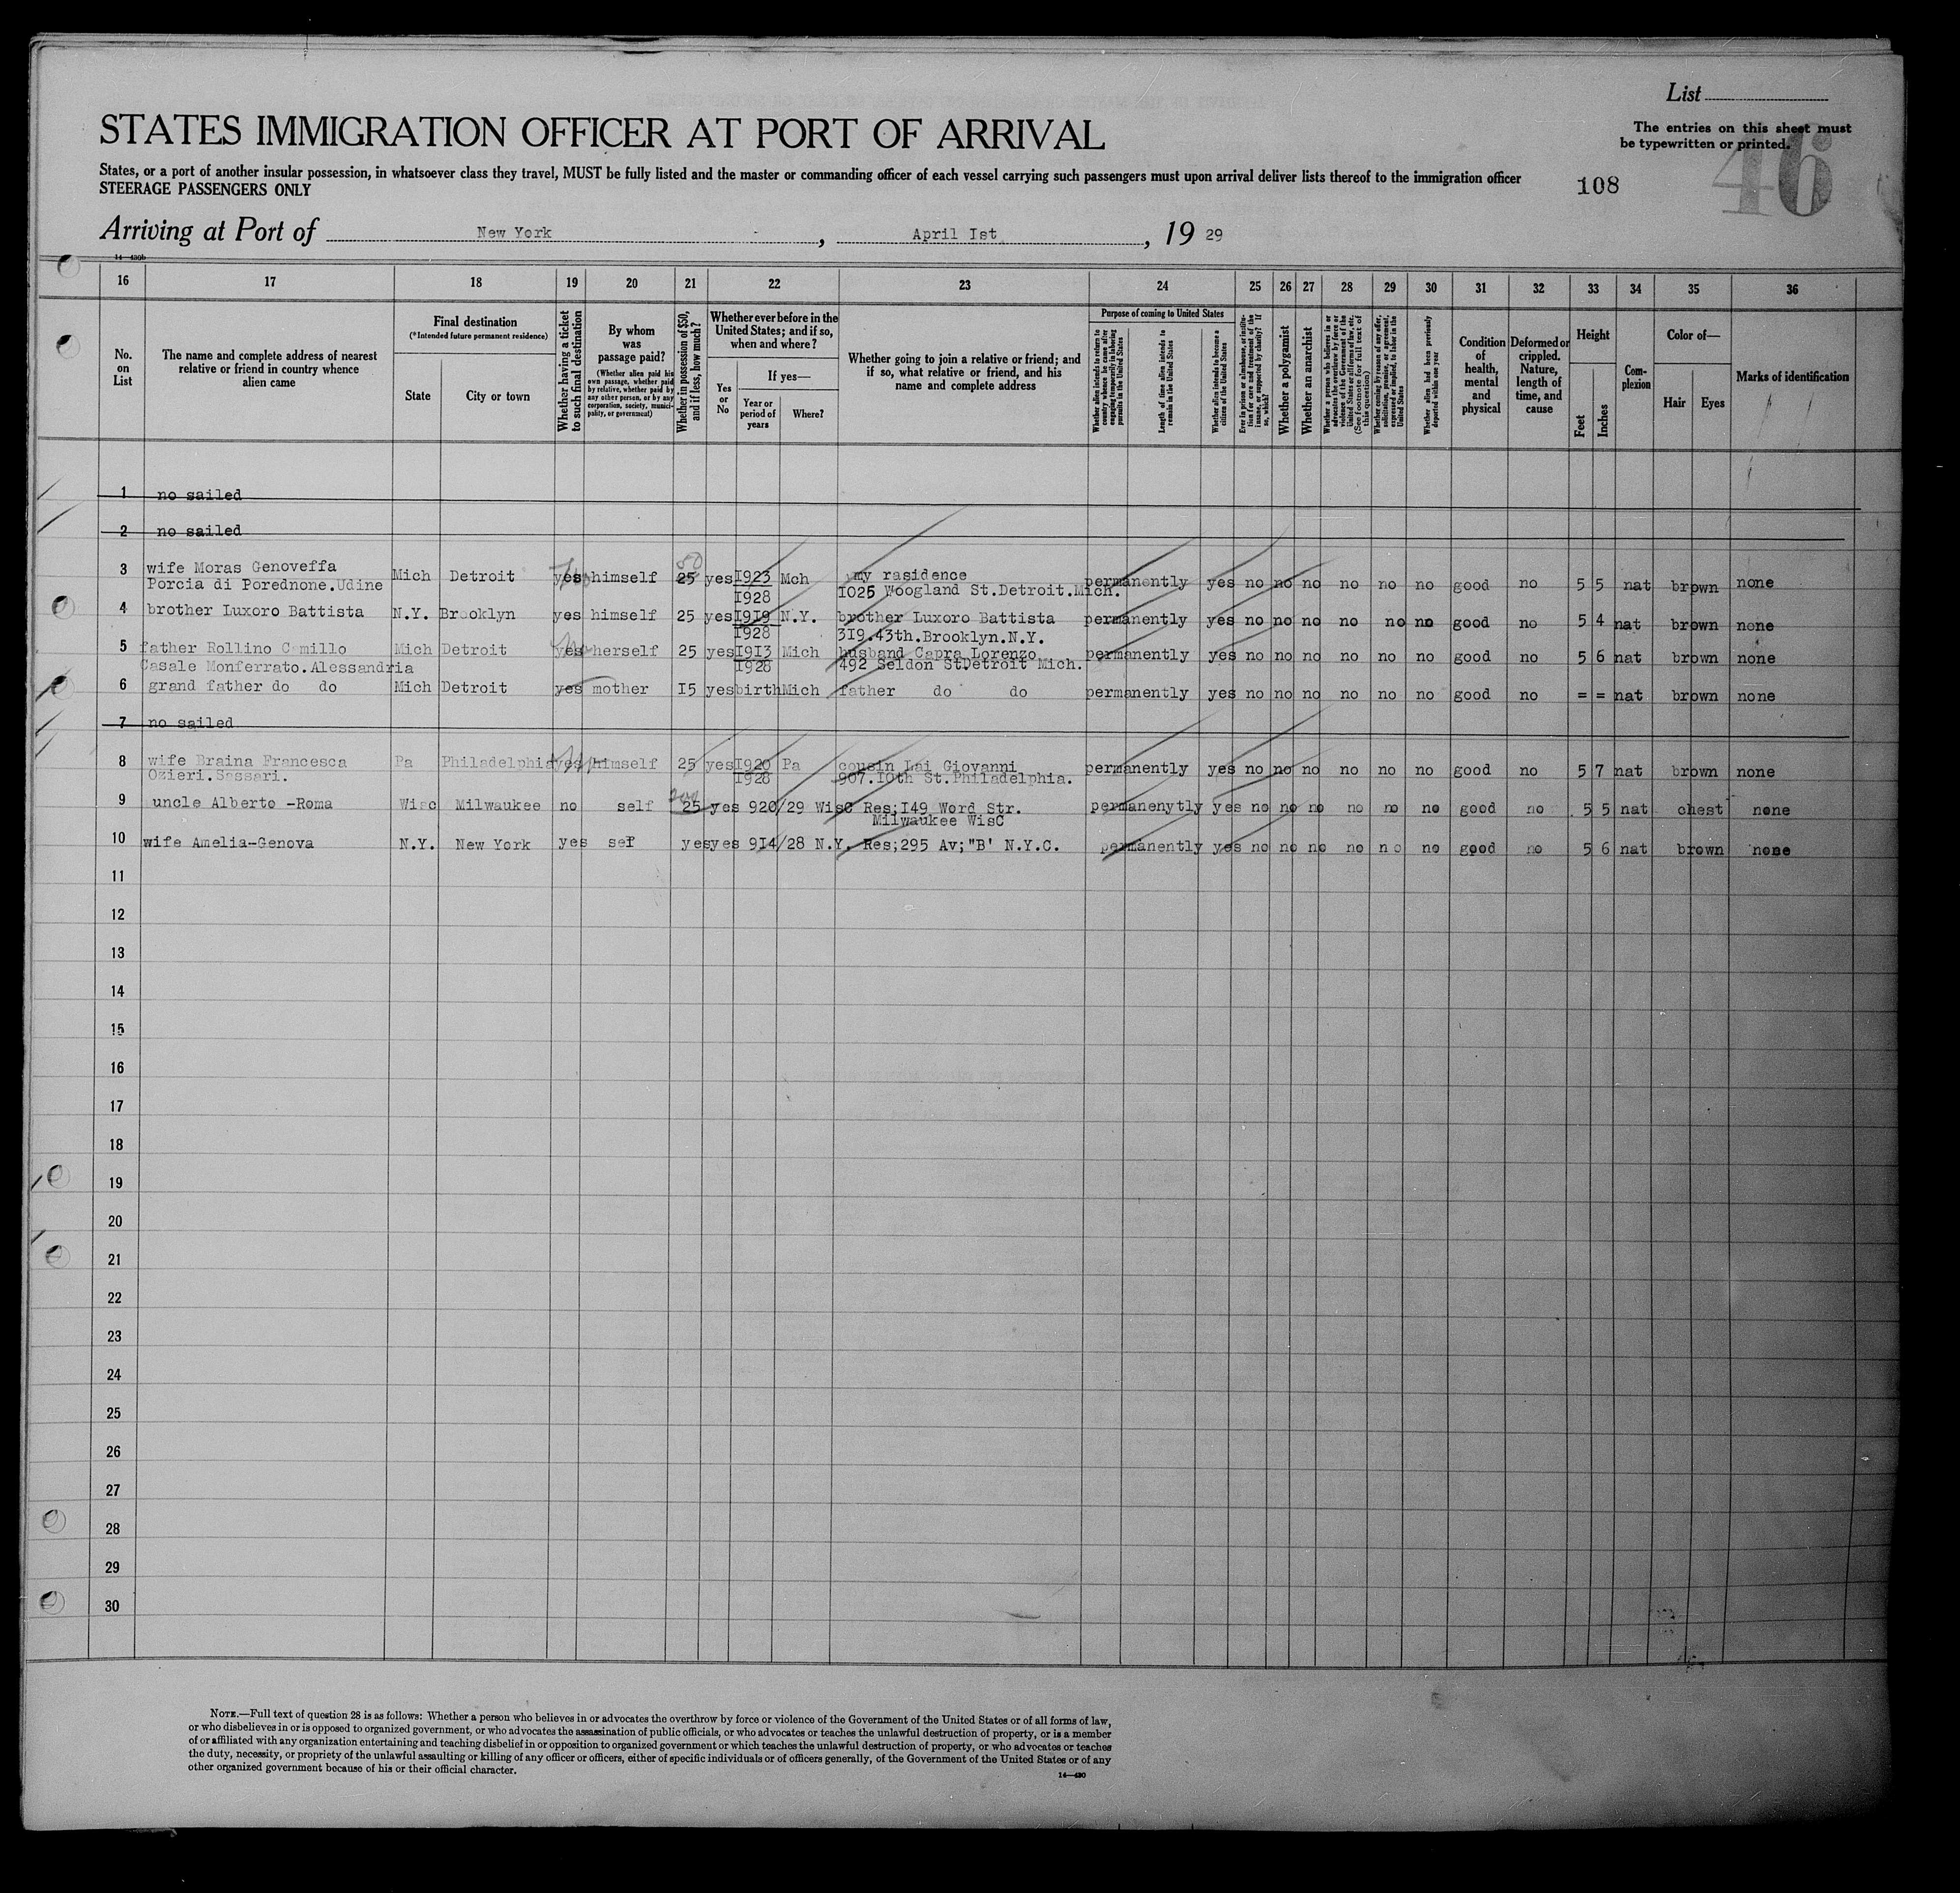 List
The entries on this sheet must
be typewritten or printed.
46
108
STATES IMMIGRATION OFFICER AT PORT OF ARRIVAL
States, or a port of another insular possession, in whatsoever class they travel, MUST be fully listed and the master or commanding officer of each vessel carrying such passengers must upon arrival deliver lists thereof to the immigration officer
STEERAGE PASSENGERS ONLY
Arriving at Port of New York, April Ist, 19 29
16 17 18 19 20 21 22 23 24 25 26 27 28 29 30 31 32 33 34 35 36
No. on List
The name and complete address of nearest relative or friend in country whence alien came
Final destination
(*Intended future permanent residence)
State
City or town
Whether having a ticket to such final destination
By whom was passage paid?
(Whether alien paid his own passage, whether paid by relative, whether paid by any other person, or by any corporation, society, municipality, or government)
Whether in possession of $50, and if less, how much?
Whether ever before in the United States; and if so, when and where?
Yes or No
If yes—
Year or period of years
Where?
Whether going to join a relative or friend; and if so, what relative or friend, and his name and complete address
Purpose of coming to United States
Whether alien intends to return to country whence he came after engaging temporarily in laboring pursuits in the United States
Length of time alien intends to remain in the United States
Whether alien intends to become a citizen of the United States
Ever in prison or almshouse, or institution for care and treatment of the insane, or supported by charity? If so, which?
Whether a polygamist
Whether an anarchist
Whether a person who believes in or advocates the overthrow by force or violence of the Government of the United States or all forms of law, etc. (See footnote for full text of this question)
Whether coming by reason of any offer, solicitation, promise, or agreement, expressed or implied, to labor in the United States
Whether alien had been previously deported within one year
Condition of health, mental and physical
Deformed or crippled. Nature, length of time, and cause
Height
Feet
Inches
Complexion
Color of—
Hair
Eyes
Marks of identification
1 no sailed
2 no sailed
3 wife Moras Genoveffa Mich Detroit yes himself 25 50 yes 1923 Mch my rasidence permanently yes no no no no no no good no 5 5 nat brown none
Porcia di Porednone.Udine 1928 1025 Woogland St.Detroit.Mich.
4 brother Luxoro Battista N.Y. Brooklyn yes himself 25 yes 1919 N.Y. brother Luxoro Battista permanently yes no no no no no no good no 5 4 nat brown none
1928 319.43th.Brooklyn.N.Y.
5 father Rollino Camillo Mich Detroit yes herself 25 yes 1913 Mich husband Capra Lorenzo permanently yes no no no no no no good no 5 6 nat brown none
Casale Monferrato.Alessandria 1928 492 Seldon StDetroit Mich.
6 grand father do do Mich Detroit yes mother 15 yes birth Mich father do do permanently yes no no no no no no good no = = nat brown none
7 no sailed
8 wife Braina Francesca Pa Philadelphia yes himself 25 yes 1920 Pa cousin Lai Giovanni permanently yes no no no no no no good no 5 7 nat brown none
Ozieri.Sassari. 1928 907.10th St.Philadelphia.
9 uncle Alberto -Roma Wisc Milwaukee no self 25 yes 920/29 WisC Res;149 Word Str. permanenytly yes no no no no no no good no 5 5 nat chest none
Milwaukee WisC
10 wife Amelia-Genova N.Y. New York yes sef yes yes 914/28 N.Y. Res;295 Av;"B' N.Y.C. permanently yes no no no no no no good no 5 6 nat brown none
11
12
13
14
15
16
17
18
19
20
21
22
23
24
25
26
27
28
29
30
NOTE.—Full text of question 28 is as follows: Whether a person who believes in or advocates the overthrow by force or violence of the Government of the United States or of all forms of law,
or who disbelieves in or is opposed to organized government, or who advocates the assassination of public officials, or who advocates or teaches the unlawful destruction of property, or is a member
of or affiliated with any organization entertaining and teaching disbelief in or opposition to organized government or which teaches the unlawful destruction of property, or who advocates or teaches
the duty, necessity, or propriety of the unlawful assaulting or killing of any officer or officers, either of specific individuals or of officers generally, of the Government of the United States or of any
other organized government because of his or their official character.
14—430